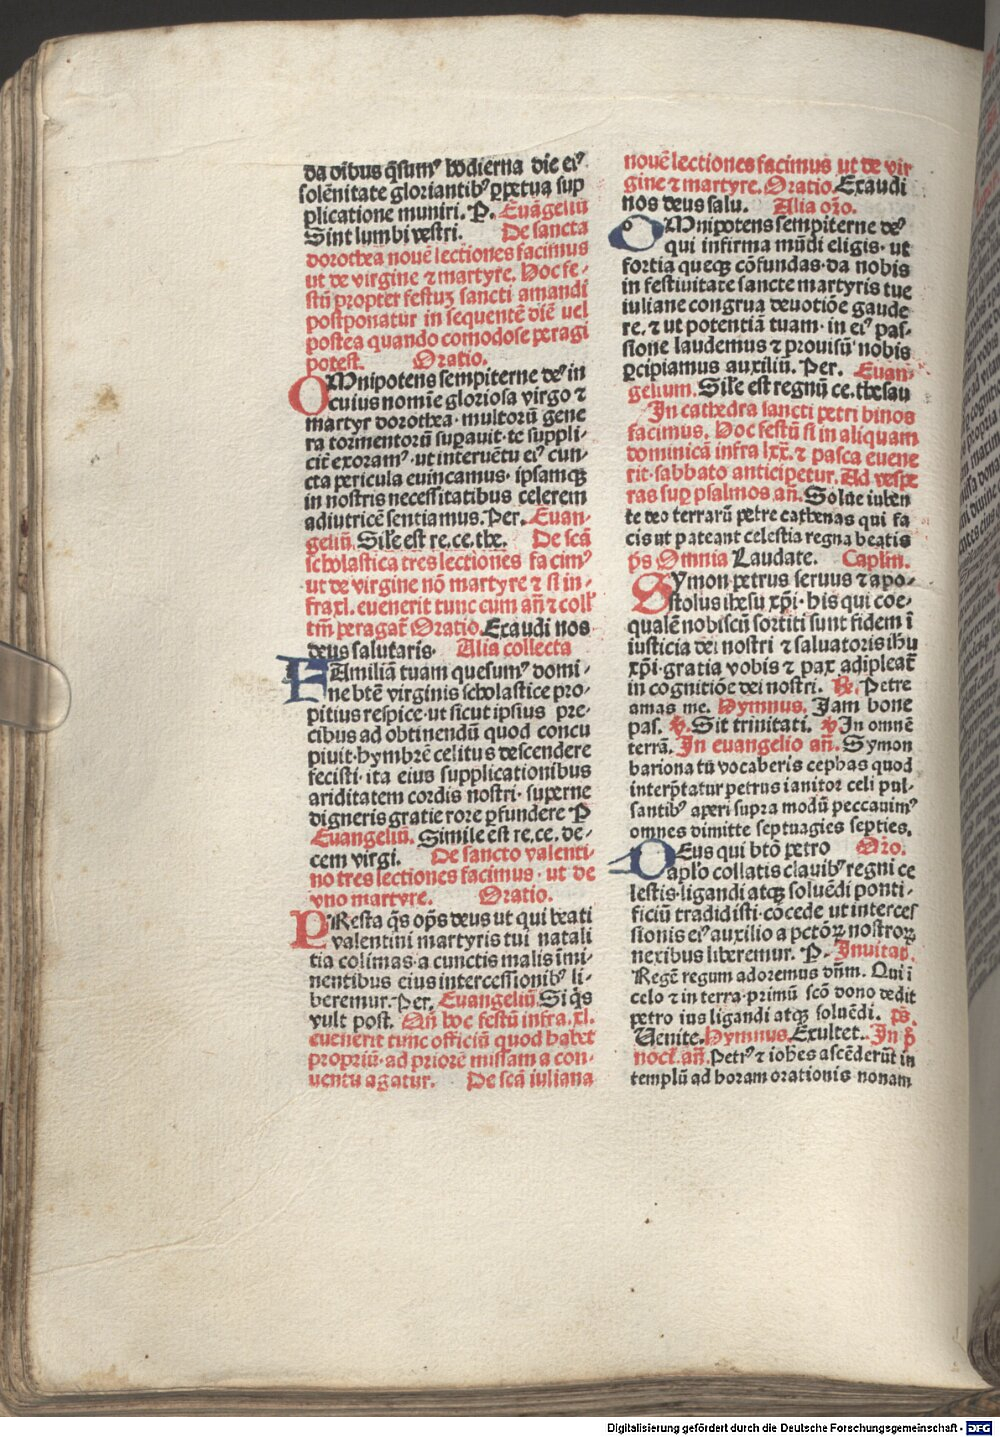 da oībus q̄sumꝰ hodierna die eiꝰ
solēnitate gloriantibꝰ ꝑpetua sup
plicatione muniri. P. Euāgeliū
Sint lumbi vestri. De sancta
dorothea nouē lectiones facimus
ut de virgine ⁊ martyre. Hoc fe⸗
stū propter festuꝫ sancti amandi
postponatur in sequentē diē uel
postea quando comodose peragi
potest. Oratio.
OMnipotens sempiterne deꝰ in
cuius nomīe gloriosa virgo ⁊
martyr dorothea · multorū gene
ra tormentorū suꝑauit · te suppli⸗
cit̄ exoramꝰ · ut interuētu eiꝰ cun⸗
cta pericula euincamus · ipsamqꝫ
in nostris necessitatibus celerem
adiutricē sentiamus. Per. Euan⸗
geliū. Sil̄e est re. ce. the. De scā
scholastica tres lectiones facimꝰ
ut de virgine nō martyre ⁊ si in⸗
fra xl. euenerit tunc cum añ ⁊ coll'
tm̄ peragat̄ Oratio. Exaudi nos
deus salutaris · Alia collecta
FAmiliā tuam quesumꝰ domi⸗
ne btē virginis scholastice pro⸗
pitius respice · ut sicut ipsius pre⸗
cibus ad obtinendū quod concu
piuit · hymbrē celitus descendere
fecisti · ita eius supplicationibus
ariditatem cordis nostri · superne
digneris gratie rore ꝑfundere P
Euangeliū. Simile est re. ce. de⸗
cem virgi. De sancto valenti⸗
no tres lectiones facimus · ut de
vno martyre. Oratio.
PResta q̄s op̄s deus ut qui beati
valentini martyris tui natali
tia colimas · a cunctis malis īmi⸗
nentibus eius intercessionibꝰ li⸗
beremur. Per. Euangeliū. Si q̄s
vult post. Añ hoc festū infra. xl.
euenerit tunc officiū quod habet
propriū · ad priorē missam a con⸗
uentu agatur. De scā iuliana
nouē lectiones facimus ut de vir
gine ⁊ martyre. Oratio. Exaudi
nos deus salu. Alia oŕo.
OMnipotens sempiterne deꝰ
qui infirma mūdi eligis · ut
fortia queqꝫ cōfundas · da nobis
in festiuitate sancte martyris tue
iuliane congrua deuotiōe gaude
re. ⁊ ut potentiā tuam · in eiꝰ pas⸗
sione laudemus ⁊ prouisū nobis
ꝑcipiamus auxiliū. Per. Euan⸗
gelium. Sil̄e est regnū ce. thesau
In cathedra sancti petri binos
facimus. Hoc festū si in aliquam
dominicā infra lxx. ⁊ pasca euene
rit · sabbato anticipetur. Ad vespe
ras suꝑ psalmos añ. Solue iuben
te deo terrarū petre cathenas qui fa
cis ut pateant celestia regna beatis
p̄s Omnia Laudate. Capl'm.
SYmon petrus seruus ⁊ apo⸗
stolus ihesu xp̄i · his qui coe⸗
qualē nobiscū sortiti sunt fidem ī
iusticia dei nostri ⁊ saluatoris ihu
xp̄i · gratia vobis ⁊ pax adipleat̄
in cognitiōe dei nostri. ℟. Petre
amas me. Hymnus. Iam bone
pas. ℣. Sit trinitati. ℣ In omnē
terrā. In euangelio añ. Symon
bariona tū vocaberis cephas quod
interp̄tatur petrus ianitor celi pul⸗
santibꝰ aperi supra modū peccauimꝰ
omnes dimitte septuagies septies.
DEus qui btō petro Oŕo.
apl'o collatis clauibꝰ regni ce
lestis · ligandi atqꝫ soluēdi ponti⸗
ficiū tradidisti · cōcede ut interces
sionis eiꝰ auxilio a pctōꝝ nostroꝝ
nexibus liberemur. P. Inuitat.
Regē regum adoremus dn̄m. Qui ī
celo ⁊ in terra · primū scō dono dedit
petro ius ligandi atqꝫ soluēdi. p̄s.
Uenite. Hymnus. Exultet. In p̄
noct. añ. Petrꝰ ⁊ iohēs ascēderūt in
templū ad horam orationis nonam
Digitalisierung gefördert durch die Deutsche Forschungsgemeinschaft - DFG